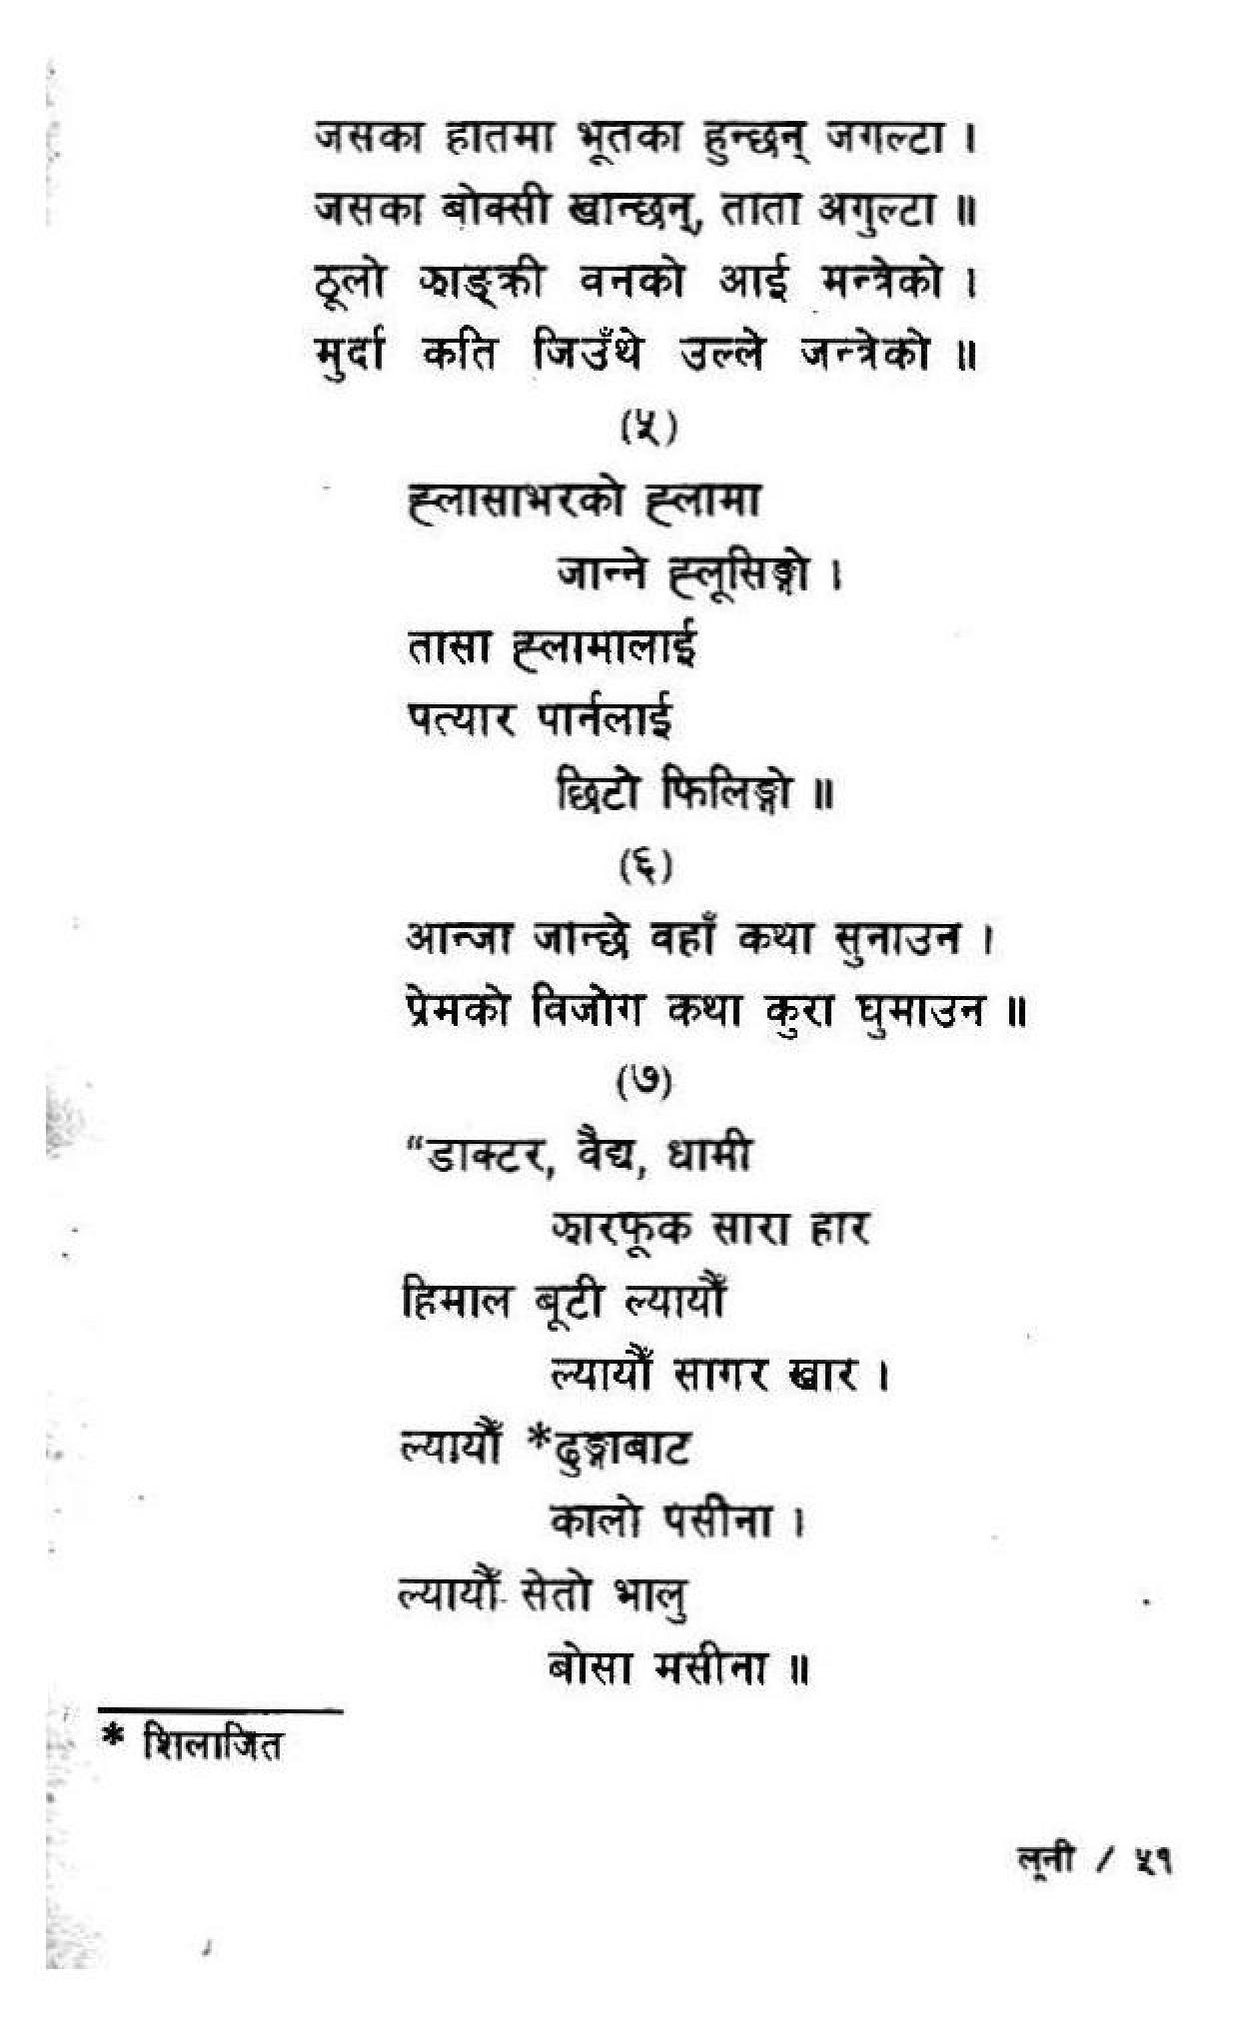 जसका हातमा भूतका हुन्छन् जगल्टा ।
जसका बोक्सी खान्छन्, ताता अगुल्टा ॥
ठूलो झाङ्क्री वनको आई मन्त्रेको ।
मुर्दा कति जिउँथे उल्ले जन्त्रेको ॥
(५)
ह्लासाभरको ह्लामा
जान्ने ह्लूसिङ्गो ।
तासा ह्लामालाई
पत्यार पार्नलाई
छिटो फिलिङ्गो ॥
(६)
आन्जा जान्छे वहाँ कथा सुनाउन ।
प्रेमको विजोग कथा कुरा घुमाउन ॥
(७)
“डाक्टर, वैद्य, धामी
झारफूक सारा हार
हिमाल बूटी ल्यायौँ
ल्यायौँ सागर खार ।
ल्यायौँ *ढुङ्गाबाट
कालो पसीना ।
ल्यायौँ सेतो भालु
बोसा मसीना ॥
* शिलाजित
लूनी / ५१